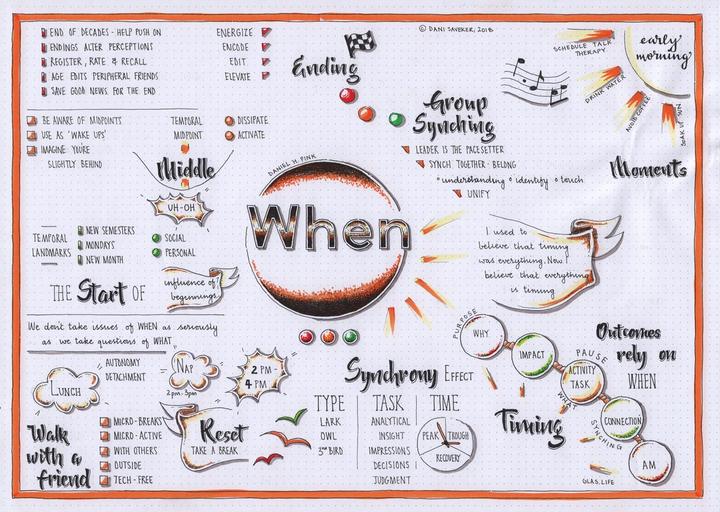 END OF DECADES - HELP PUSH ON
ENDINGS ALTER PERCEPTIONS
REGISTER, RATE & RECALL
AGE EDITS PERIPHERAL FRIENDS
SAVE GOOD NEWS FOR THE END
ENERGIZE
ENCODE
EDIT
ELEVATE
Ending
© DANI SAVEKER, 2018
SCHEDULE TALK
THERAPY
DRINK WATER
AVOID COFFEE
SOAK UP SUN
early
morning
Moments
Group
Synching
LEADER IS THE PACESETTER
SYNCH TOGETHER - BELONG
understanding identify touch
UNIFY
BE AWARE OF MIDPOINTS
USE AS 'WAKE UPS'
IMAGINE YOU'RE
SLIGHTLY BEHIND
TEMPORAL
MIDPOINT
DISSIPATE
ACTIVATE
Middle
UH-OH
DANIEL H. PINK
When
TEMPORAL
LANDMARKS
NEW SEMESTERS
MONDAYS
NEW MONTH
SOCIAL
PERSONAL
THE Start OF
influence of
beginnings
We don't take issues of WHEN as seriously
as we take questions of WHAT
I used to
believe that timing
was everything. Now I
believe that everything
is timing
LUNCH
AUTONOMY
DETACHMENT
NAP
2pm - 3pm
2 PM -
4 PM
Walk
with a
friend
MICRO-BREAKS
MICRO-ACTIVE
WITH OTHERS
OUTSIDE
TECH-FREE
Reset
TAKE A BREAK
Synchrony EFFECT
TYPE
LARK
OWL
3RD BIRD
TASK
ANALYTICAL
INSIGHT
IMPRESSIONS
DECISIONS
JUDGMENT
TIME
PEAK
TROUGH
RECOVERY
PURPOSE
WHY
IMPACT
PAUSE
ACTIVITY
TASK
WHAT
CONNECTION
SYNCHING
AM
Timing
Outcomes
rely on
WHEN
GLAS.LIFE